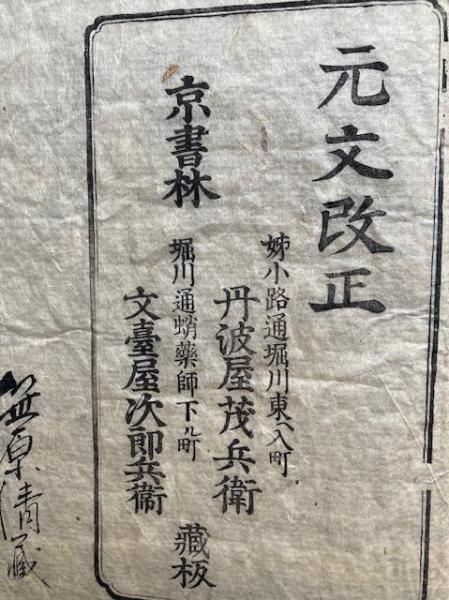 元文改正
京書林
姊小路通堀川東ヘ入町
丹波屋茂兵衛
堀川通蛸藥師下ル町
文臺屋次郎兵衞
藏板
笠原清藏